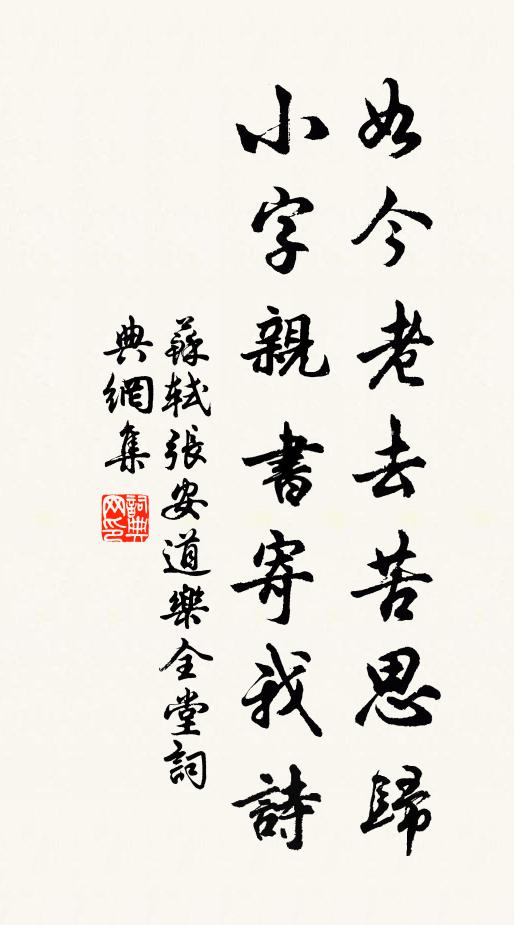 如今老去苦思歸
小字親書寄我詩
蘇軾張安道樂全堂詞
典網集
詞典網印